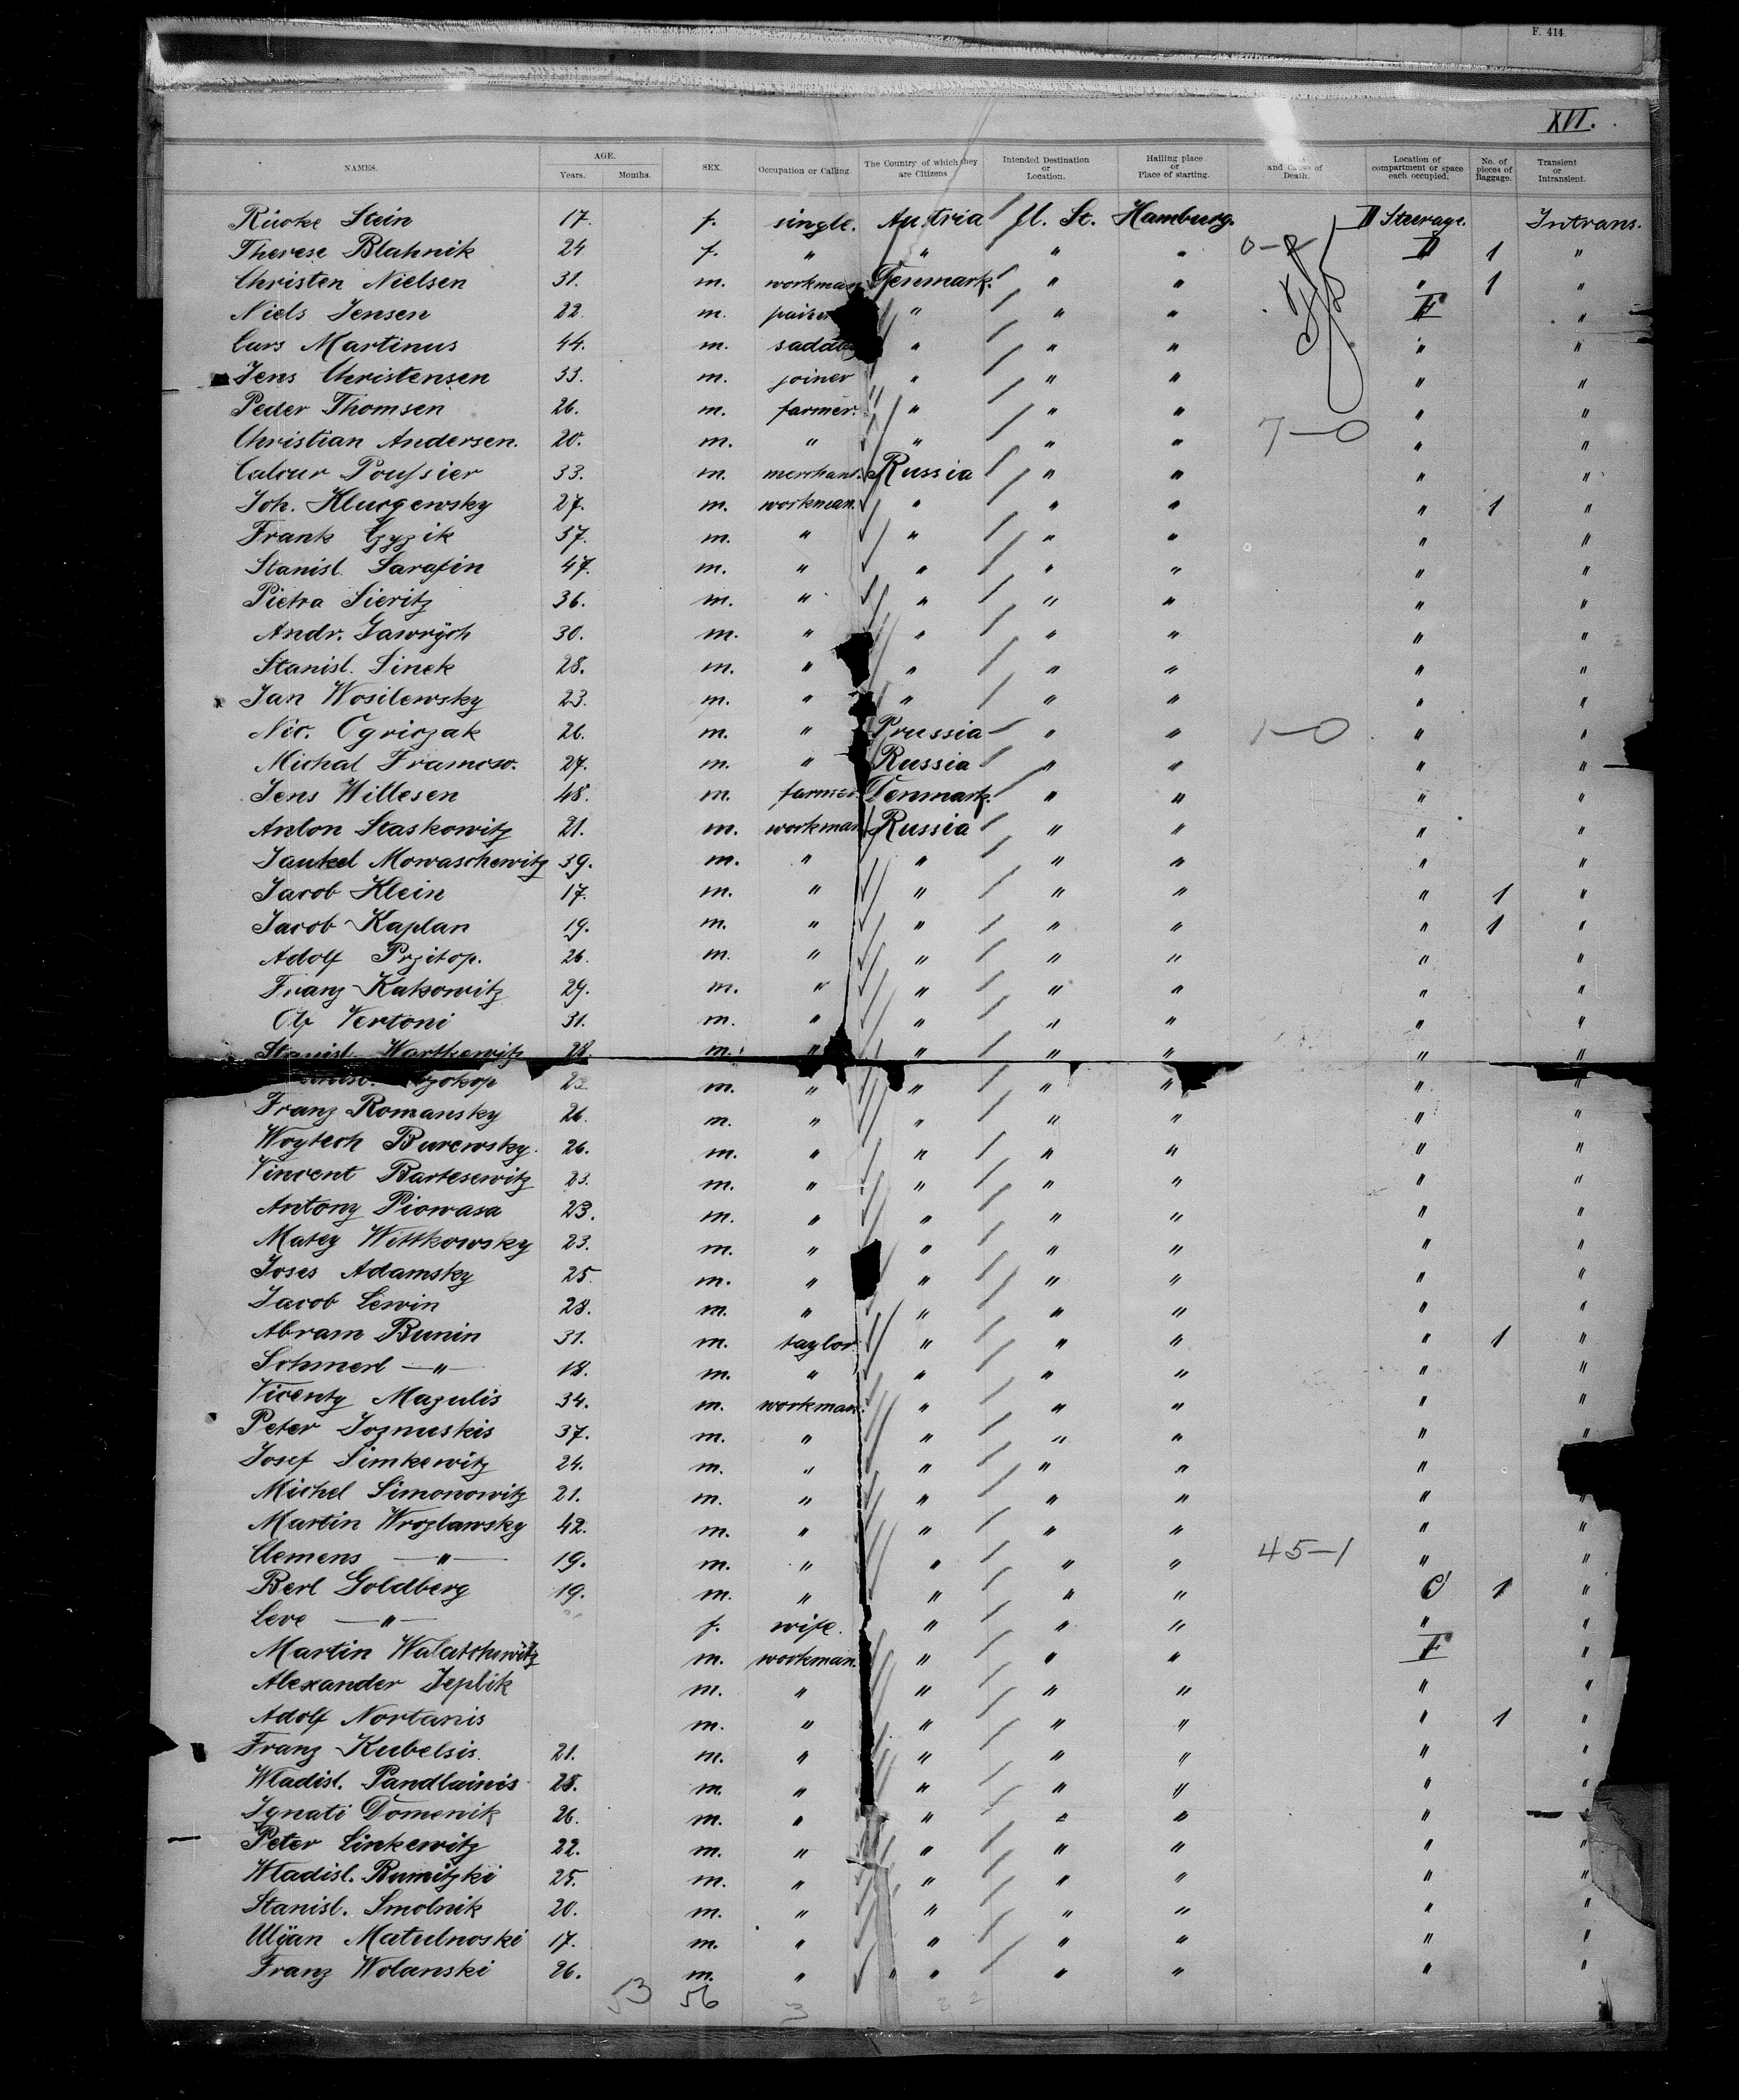 F. 414.
XVI.
NAMES. AGE. Years. Months. SEX. Occupation or Calling. The Country of which they are Citizens Intended Destination or Location. Hailing place or Place of starting. and Cause of Death. Location of compartment or space each occupied. No. of pieces of Baggage. Transient or Intransient.
Stein 17. f. single. Austria U. St. Hamburg. II Steerage. Intrans.
Therese Blahnik 24 f. " " " " 0- II 1 "
Christen Nielsen 31. m. workman Denmark. " " " 1 "
Niels Jensen 22. m. " " " "
Lars Martinus 44. m. " " " " "
Jens Christensen 33. m. joiner " " " " "
Peder Thomsen 26. m. farmer. " " " " "
Christian Andersen. 20. m. " " " " 7-0 " "
33. m. merchant. Russia " " " "
Joh. Klurgewsky 27. m. workman. " " " " 1 "
Frank 37. m. " " " " " "
Stanisl. Sarafin 47. m. " " " " " "
Pietra Sieritz 36. m. " " " " " "
Andr. Gawrych 30. m. " " " " " "
Stanisl. Sinek 28. m. " " " " " "
Jan Wosilewsky 23. m. " " " " " "
Nic. Ogriczak 26. m. " Prussia " " 1-0 " "
Michal 27. m. " Russia " " " "
Jens Willesen 48. m. farmer. Denmark. " " " "
Anton Staskowitz 21. m. workman Russia " " " "
Jankel Mowaschewitz 39. m. " " " " " "
Jacob Klein 17. m. " " " " " 1 "
Jacob Kaplan 19. m. " " " " " 1 "
Adolf Przitop. 26. m. " " " " " "
Franz Kakowitz 29. m. " " " " " "
Vertoni 31. m. " " " " " "
Stanisl. Wartkewitz 28. m. " " " " " "
m. " " " " " "
Franz Romansky 26. m. " " " " " "
Woytech Burewsky. 26. m. " " " " " "
Vincent Bartesewitz 23. m. " " " " " "
Antony Piowasa 23. m. " " " " " "
Matey Wittkowsky 23. m. " " " " " "
Joses Adamsky 25. m. " " " " " "
Jacob Lewin 28. m. " " " " " "
Abram Bunin 31. m. taylor " " " " 1 "
Schmerl — " — 18. m. " " " " " "
Vicenty Mazulis 34. m. workman. " " " " "
Peter Jozmuskis 37. m. " " " " " "
Josef Simkewitz 24. m. " " " " "
Michel Simonowitz 21. m. " " " " " "
Martin Wrozlawsky 42. m. " " " " " "
Clemens — " — 19. m. " " " " 45-1 " "
Berl Goldberg 19. m. " " " " C 1 "
Leve — " — f. wife. " " " " "
Martin Walatschewitz m. workman. " " " "
Alexander Jeplik m. " " " " " "
Adolf Nortanis m. " " " " " 1 "
Franz Kubelsis. 21. m. " " " " " "
Wladisl. Pandlainis 28. m. " " " " " "
Ignati Domenik 26. m. " " " " " "
Peter Linkewitz 22. m. " " " " " "
Wladisl. Rumitzki 25. m. " " " " " "
Stanisl. Smolnik 20. m. " " " " " "
Uljan Matulnoski 17. m. " " " " " "
Franz Wolanski 26. m. " " " " " "
53 56 3